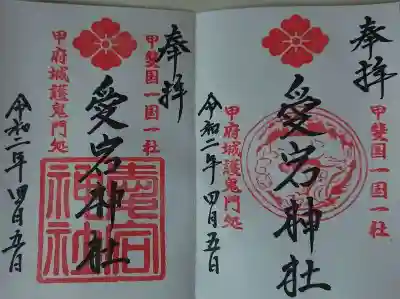 奉拝
甲斐国一国一社
愛宕神社
甲府城護鬼門処
愛宕神社
令和二年四月五日
奉拝
甲斐国一国一社
愛宕神社
甲府城護鬼門処
令和二年四月五日